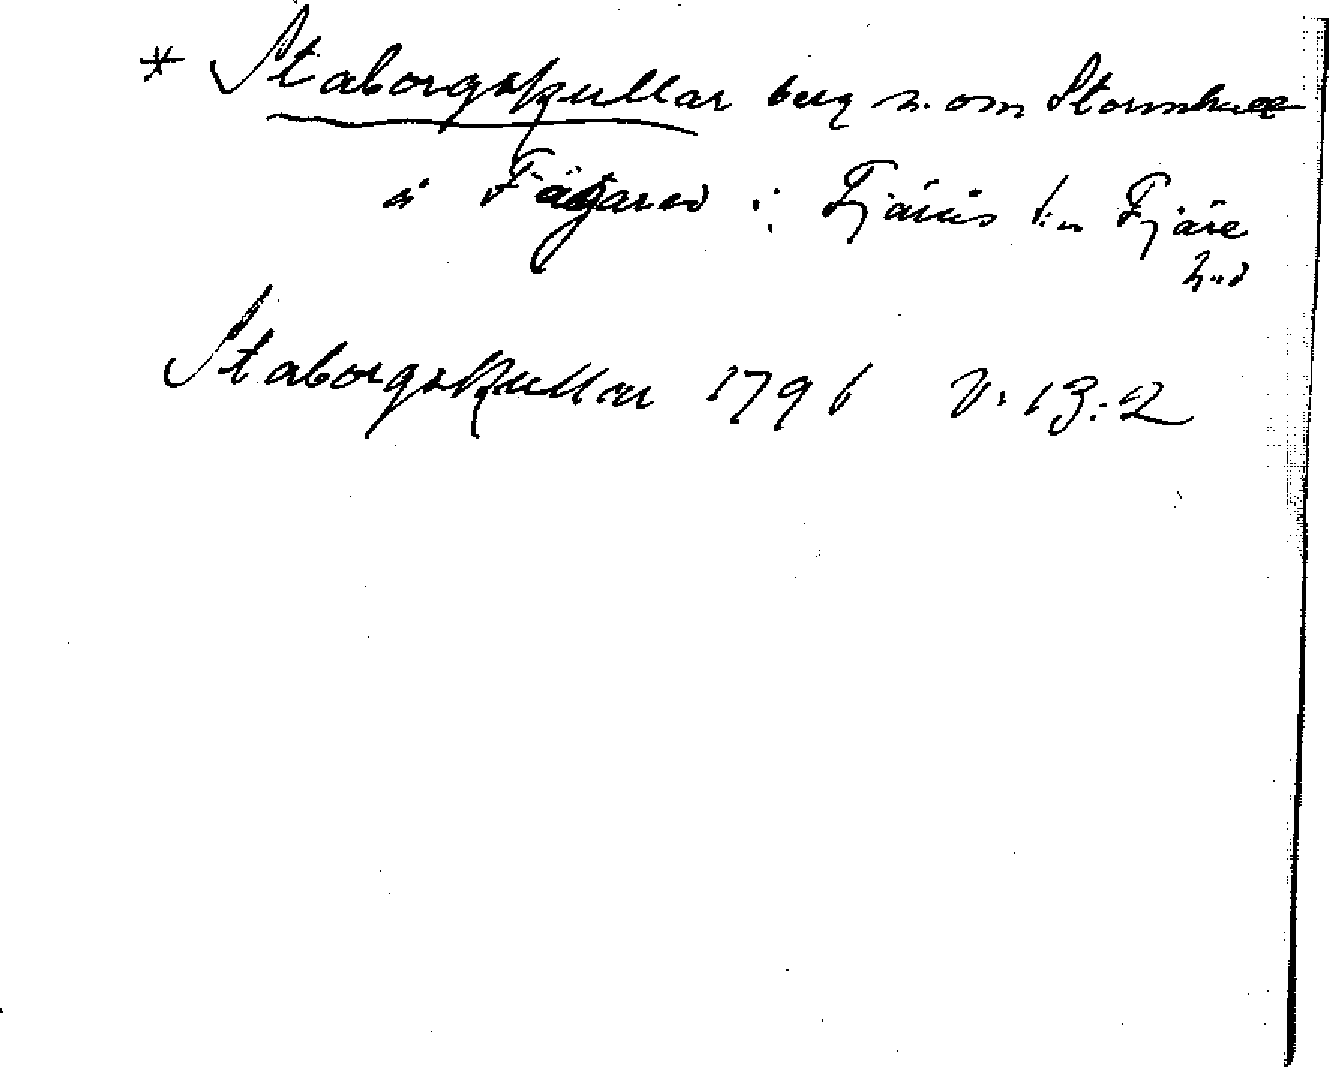 * Staborgskullar berg n. om Stormhult
å Fägared i Fjärås s:n Fjäre
h:d
Staborgskullar 1796 V: 13:2